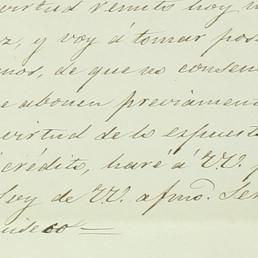 virtud remito hoy
z, y voy á tomar pose
nos, de que no consen
e abonen previamen
virtud de lo espuest
crédito, haré á VV.
Soy de VV. afmo. Ser